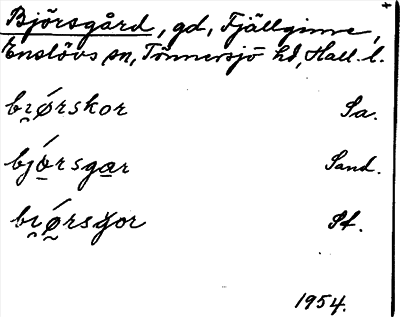 Björsgård, gd, Fjällginne,
Enslövs sn, Tönnersjö hd, Hall. l.
bi̯ǿrskor Sa.
bjó̲rsga̲r Sand.
bi̯ǿ̰rsgor Sf.
1954.